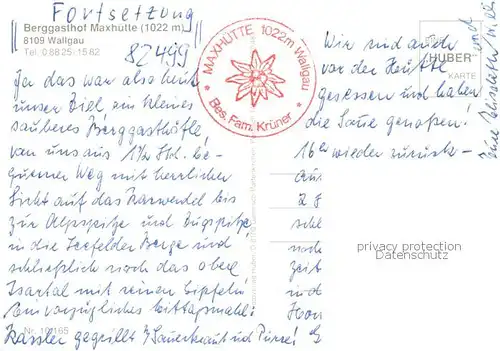 Fortsetzung
Berggasthof Maxhütte (1022 m)
8109 Wallgau
Tel. 0 88 25 - 15 82
82499
MAXHÜTTE 1022m Wallgau
Bes. Fam. Krüner
HUBER
KARTE
Ja das war also heute
unser Ziel, ein kleines
sauberes Berggasthöfle,
von uns aus 1½ Std. be-
quemer Weg mit herrlicher
Sicht auf das Karwendel bis
zur Alpspitze und Zugspitze
in die Seefelder Berge und
schließlich noch das obere
Isartal mit seinen Gipfeln!
Ein vorzügliches Mittagsmahl:
Kassler gegrillt Sauerkraut und Püree!
Wir sind auch
vor der Hütte
gesessen und haben
die Sonne genossen!
16 wieder zurück –
privacy protection
Datenschutz
Nr. 10165